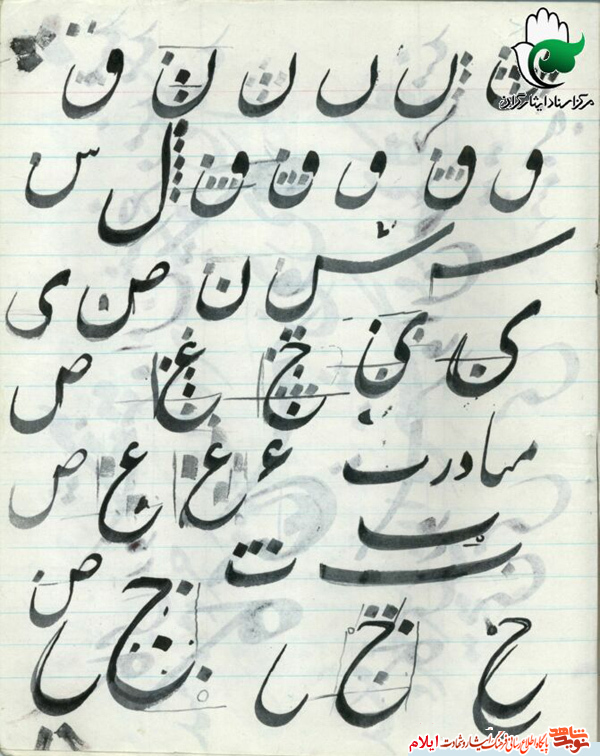 مرکز اسناد ایثارگران
ں ں ں ن ن ق
و ق و ق ق ل س
س س ن ص ی
ی ی ح ع ص
مبادرت ء ع ع ص
ب
ب ت ج ص
ح ح ر
نوید شاهد پایگاه اطلاع رسانی فرهنگ ایثار و شهادت ایلام